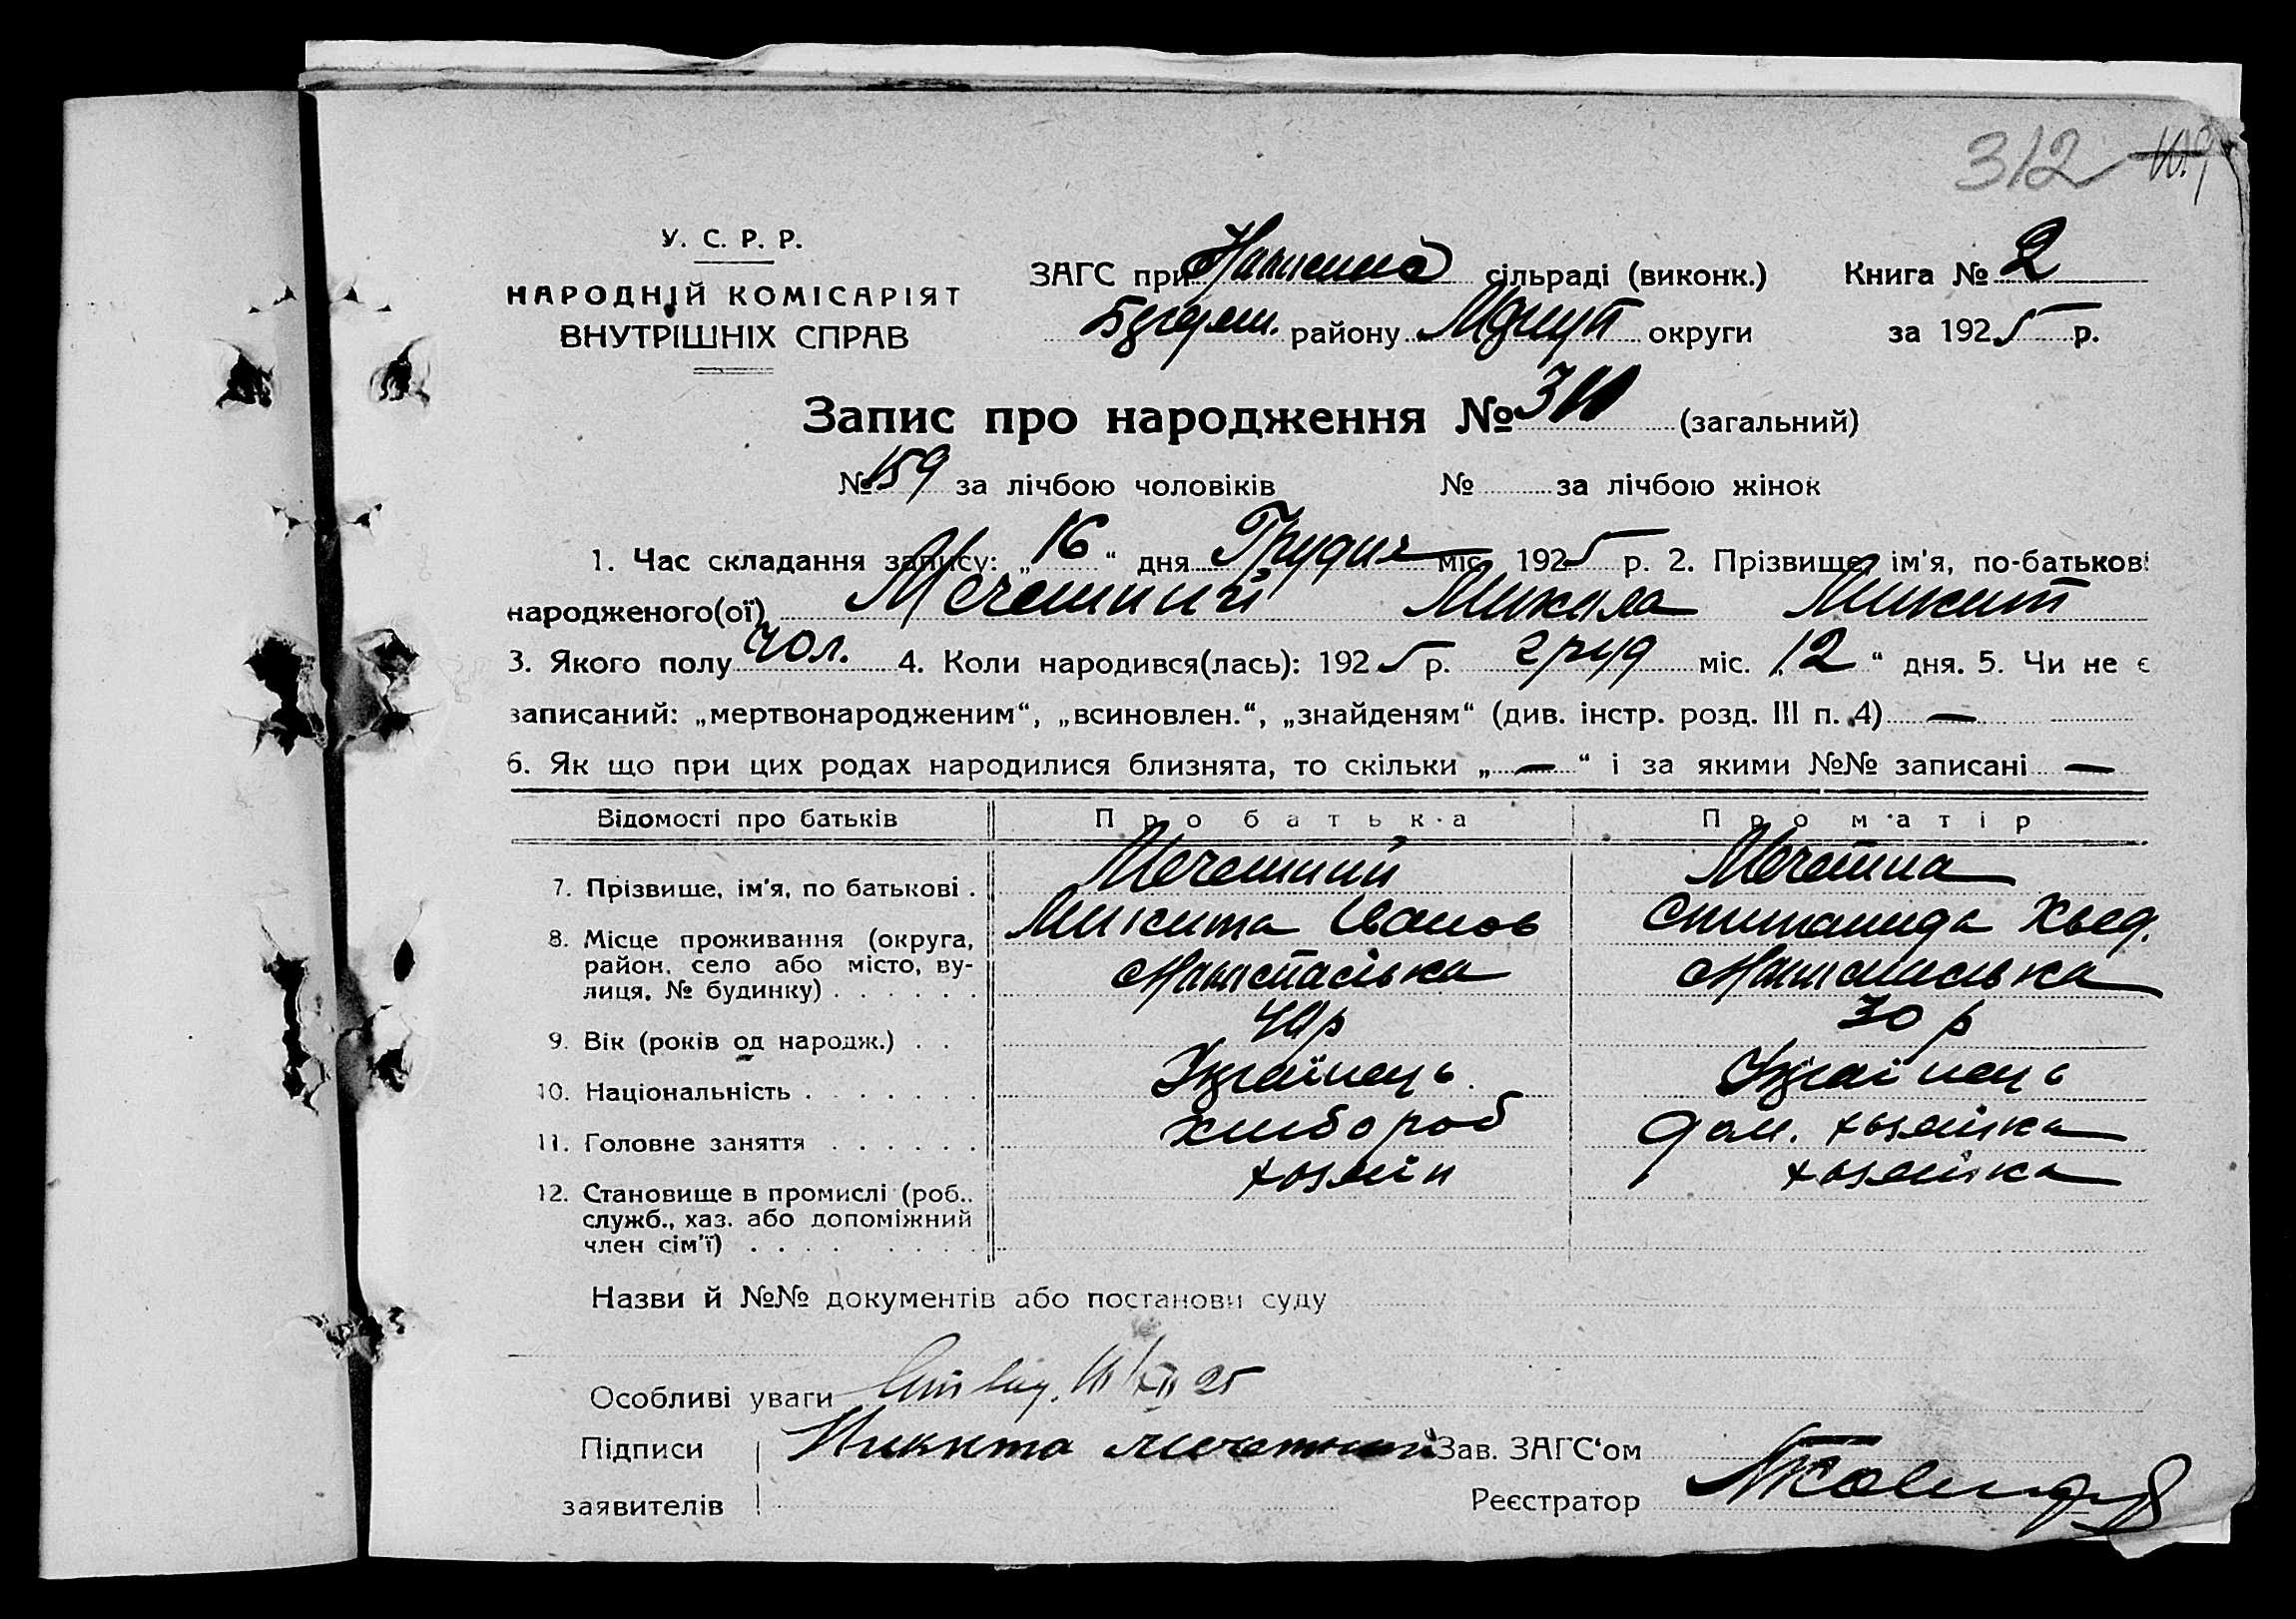 312
У. С. Р. Р.
НАРОДНІЙ КОМІСАРІЯТ
ВНУТРІШНІХ СПРАВ
ЗАГС при сільраді (виконк.) Книга № 2
району округи за 1925 р.
Запис про народження № (загальний)
№ 159 за лічбою чоловіків № за лічбою жінок
1. Час складання запису: „16“ дня Грудня міс. 1925 р. 2. Прізвище, ім'я, по-батькові
народженого(ої) Мечетний Микола Микит
3. Якого полу чол. 4. Коли народився(лась): 1925 р. груд міс. 12“ дня. 5. Чи не є
записаний: „мертвонародженим“, „всиновлен.“, „знайденям“ (див. інстр. розд. III п. 4) —
6. Як що при цих родах народилися близнята, то скільки „—“ і за якими №№ записані —
Відомості про батьків Про батька Про матір
7. Прізвище, ім'я, по батькові . Мечетний Мечетна
Микита Иванов Степанида Хвед.
8. Місце проживання (округа,
район, село або місто, ву-
лиця, № будинку) . . . . . .
9. Вік (років од народж.) . . 30 р
10. Національність . . . . . . . Українець Українець
11. Головне заняття . . . . . . хлібороб дом. хозяйка
12. Становище в промислі (роб., хозяїн хозяйка
служб., хаз. або допоміжний
член сім'ї) . . . . . . . .
Назви й №№ документів або постанови суду
Особливі уваги
Підписи Микита Мечетний Зав. ЗАГС'ом
заявителів Реєстратор